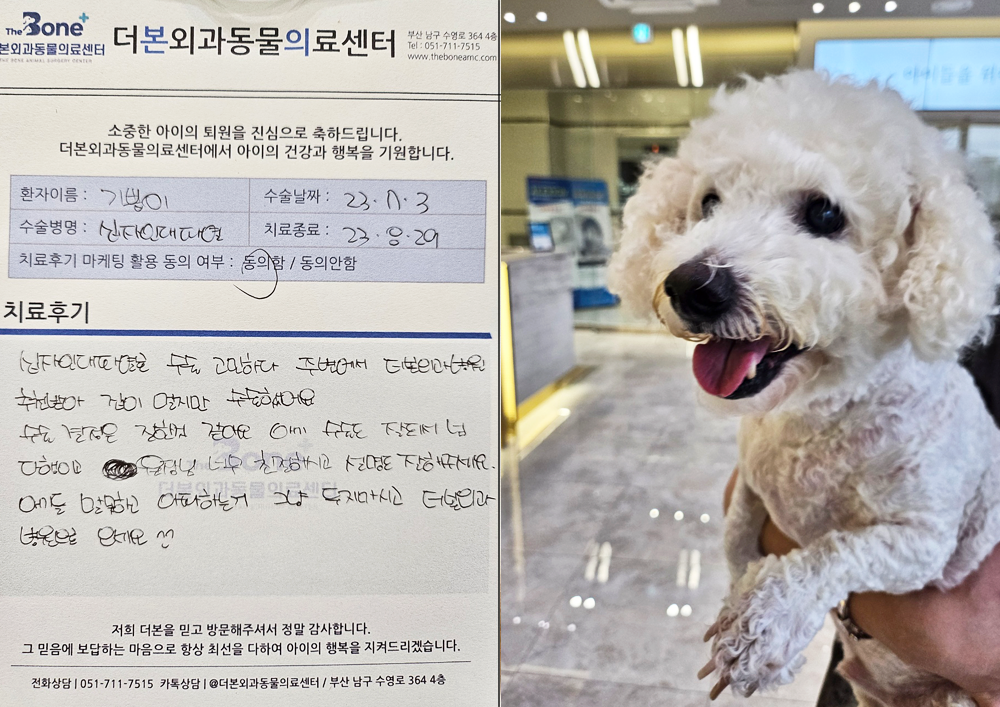 The Bone+
더본외과동물의료센터
THE BONE ANIMAL SURGERY CENTER
더본외과동물의료센터
부산 남구 수영로 364 4층
Tel : 051-711-7515
www.theboneamc.com
소중한 아이의 퇴원을 진심으로 축하드립니다.
더본외과동물의료센터에서 아이의 건강과 행복을 기원합니다.
환자이름 : 기쁨이 수술날짜 : 23. 7. 3
수술병명 : 십자인대파열 치료종료 : 23. 8. 29
치료후기 마케팅 활용 동의 여부 : 동의함 / 동의안함
치료후기
십자인대파열로 수술 고민하다 주변에서 더본외과병원
추천받아 집이 멀지만 수술했어요
수술 결정은 잘한것 같아요 애기 수술도 잘되서 넘
다행이고 원장님 너무 친절하시고 설명도 잘해주세요.
애들 말못하고 아파하는거 그냥 두지마시고 더본외과
병원으로 오세요 ^^
더본외과동물의료센터
저희 더본을 믿고 방문해주셔서 정말 감사합니다.
그 믿음에 보답하는 마음으로 항상 최선을 다하여 아이의 행복을 지켜드리겠습니다.
전화상담 | 051-711-7515 카톡상담 | @더본외과동물의료센터 / 부산 남구 수영로 364 4층
아이들을 위